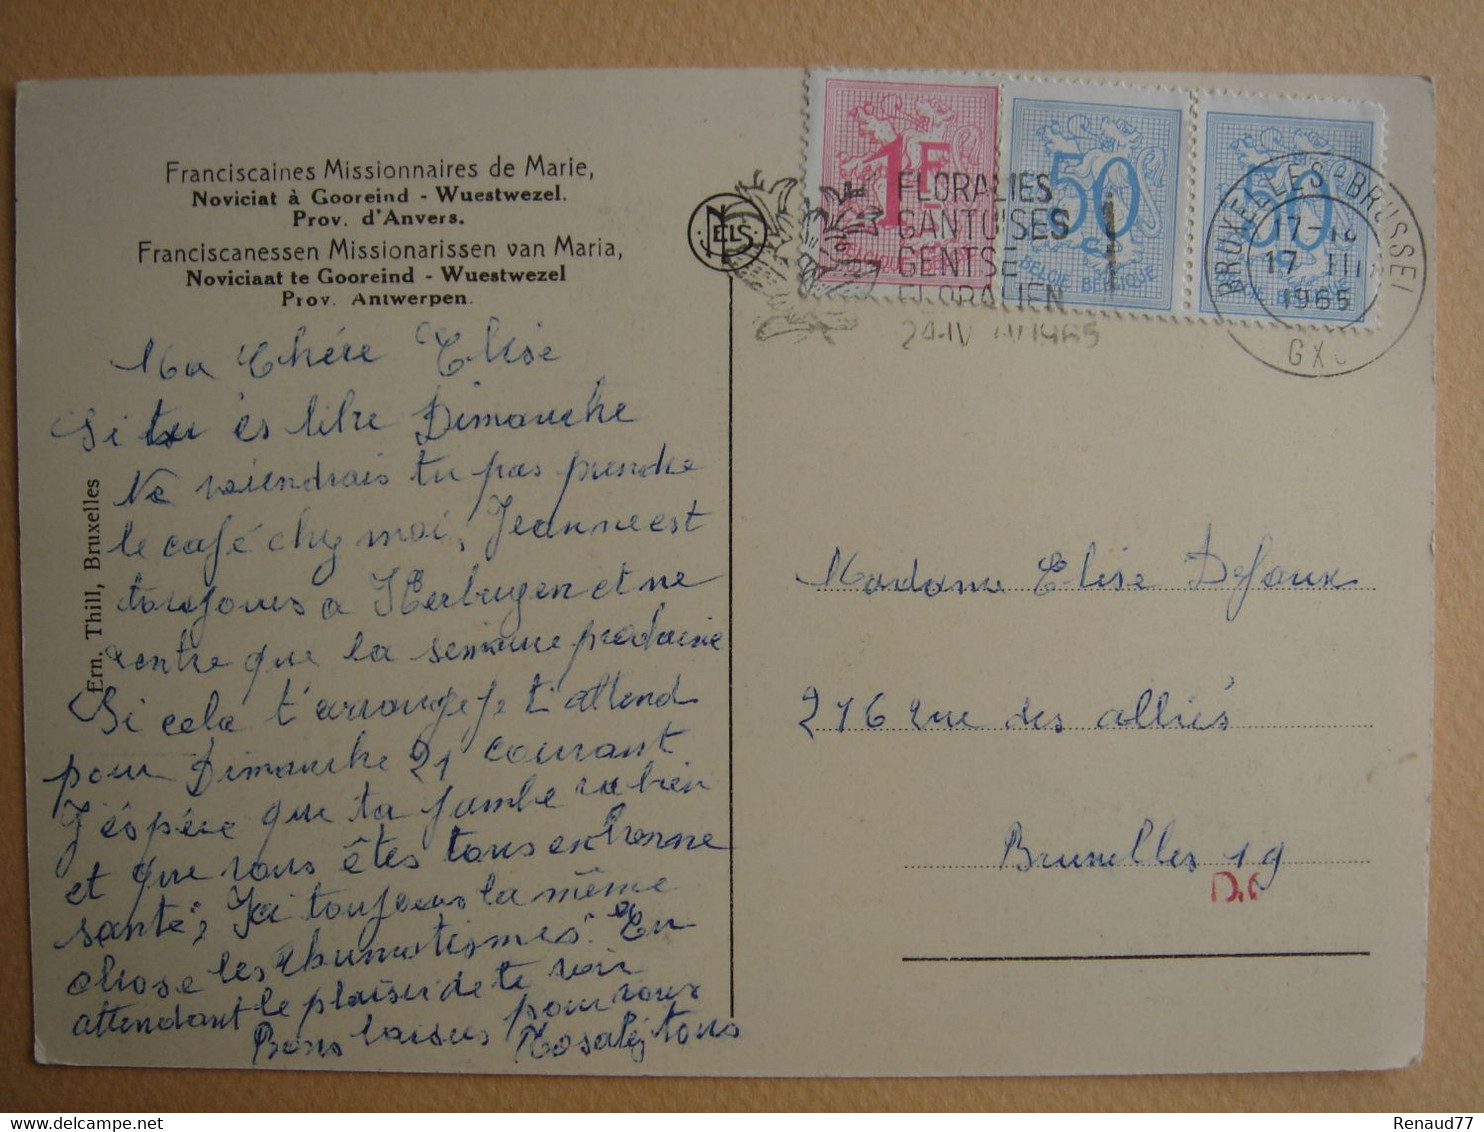 Franciscaines Missionnaires de Marie,
Noviciat à Gooreind - Wuestwezel.
Prov. d'Anvers.
Franciscanessen Missionarissen van Maria,
Noviciaat te Gooreind - Wuestwezel
Prov. Antwerpen.
NELS
Ern. Thill, Bruxelles
1F
50
50
BELGIE BELGIQUE
FLORALIES
GANTOISES
GENTSE
FLORALIEN
24-IV 1965
BRUXELLES-BRUSSEL
17-18
17 III
1965
Ma Chére Elise
Si tu es libre Dimanche
Ne viendrais tu pas prendre
le café chez moi, Jeanne est
toujours a Herbuyen et ne
rentre que la semaine prochaine
Si cela t'arrange je t'attend
pour Dimanche 21 courant
J'éspére que ta jambe va bien
et que vous êtes tous en bonne
santé, J'ai toujours la même
chose les rhumatismes. En
attendant le plaisir de te voir
Bons baisers pour vous
tous
Rosalie
Madame Elise Defaux
276 rue des alliés
Bruxelles 19
D.6
Renaud77